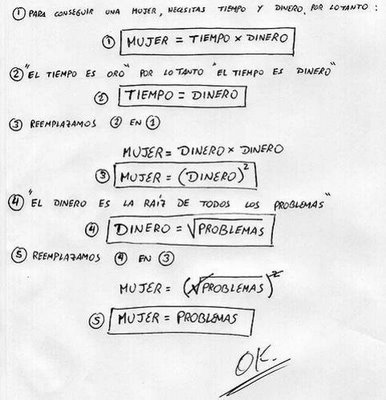 ① PARA CONSEGUIR UNA MUJER, NECESITAS TIEMPO Y DINERO, POR LO TANTO:
① MUJER = TIEMPO x DINERO
② "EL TIEMPO ES ORO" POR LO TANTO "EL TIEMPO ES DINERO"
② TIEMPO = DINERO
③ REEMPLAZAMOS ② EN ①
MUJER = DINERO x DINERO
③ MUJER = (DINERO)²
④ "EL DINERO ES LA RAÍZ DE TODOS LOS PROBLEMAS"
④ DINERO = √PROBLEMAS
⑤ REEMPLAZAMOS ④ EN ③
MUJER = (√PROBLEMAS)²
⑤ MUJER = PROBLEMAS
OK.